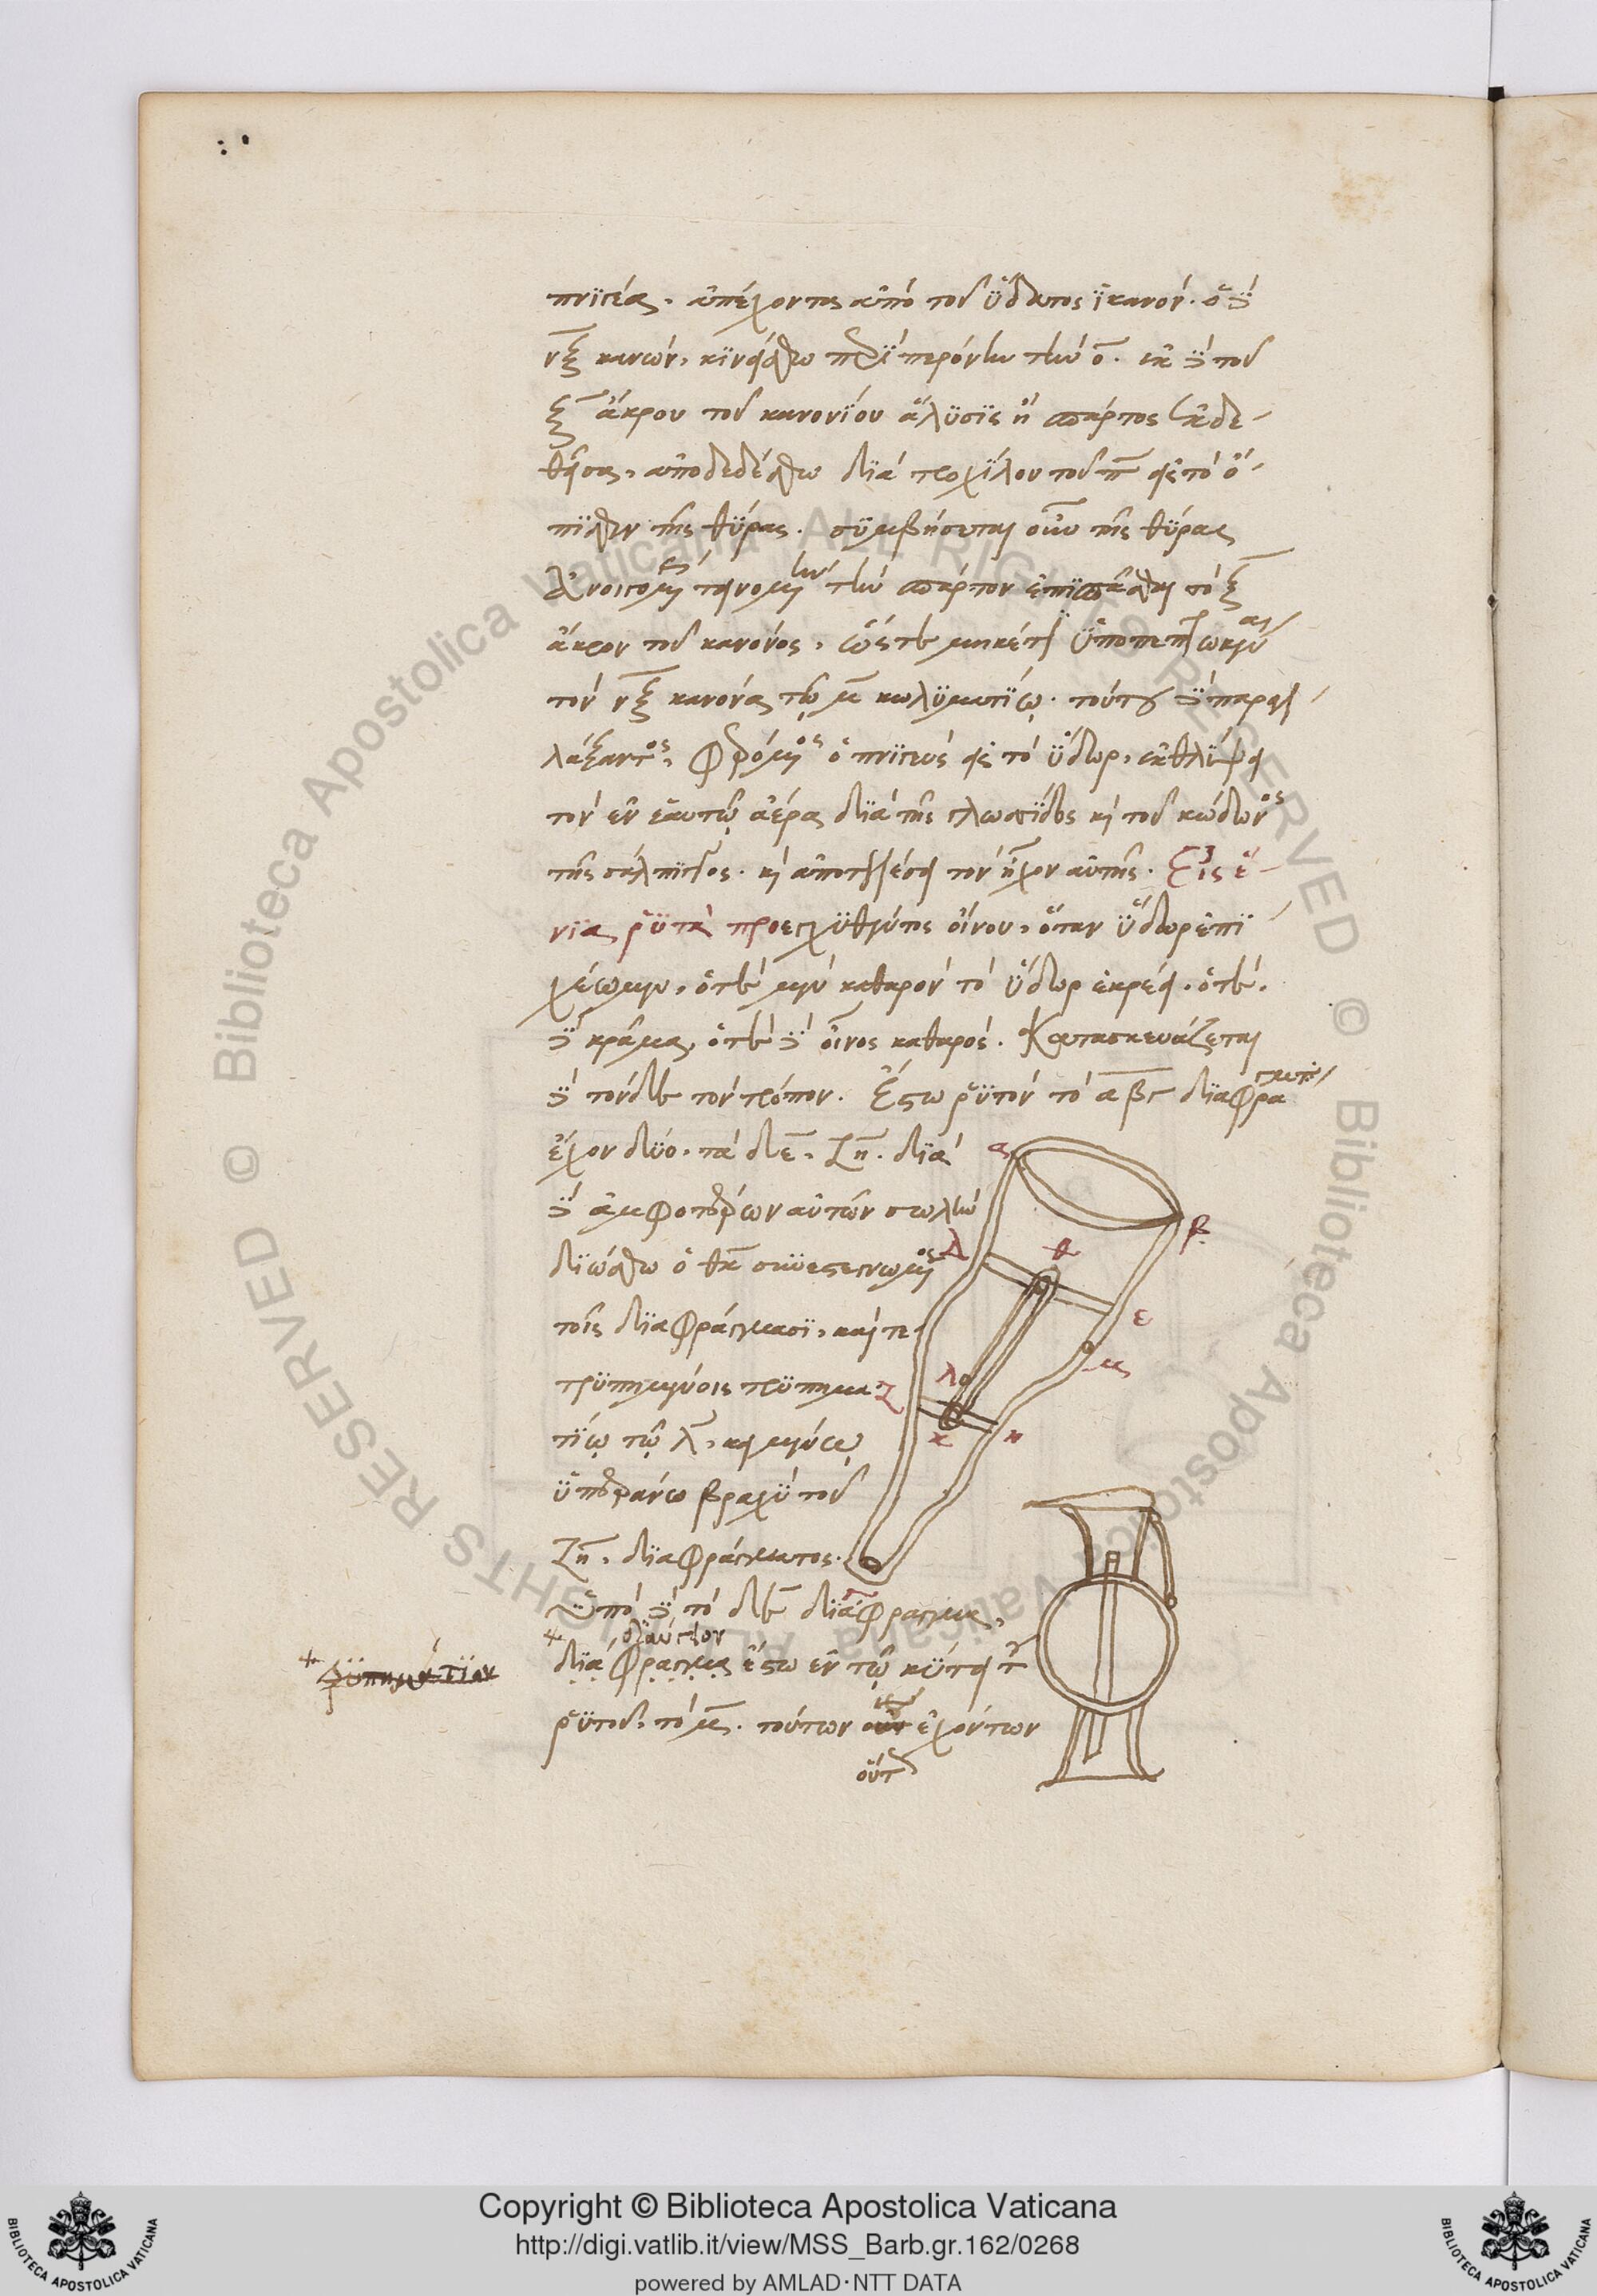 πνιγέα, ἀπέχοντος ἀπὸ τοῦ ὕδατος ἱκανόν. ὁ δὲ
νξ κανών, κινείσθω περὶ περόνην τὴν ο. ἐκ δὲ τοῦ
ξ ἄκρου τοῦ κανονίου ἅλυσις ἢ σπάρτος ἐκδε-
θεῖσα, ἀποδεδέσθω διὰ τροχίλου τοῦ π εἰς τὸ ὀ-
πίσθεν τῆς θύρας. συμβήσεται οὖν τῆς θύρας
ἀνοιγομένης τεινομένην τὴν σπάρτον ἐπισπᾶσθαι τὸ ξ
ἄκρον τοῦ κανόνος, ὥστε μηκέτι ὑποπεπτωκέναι
τὸν νξ κανόνα τῷ μ κωλυματίῳ. τούτου δὲ παραλ-
λάξαντος, φερόμενος ὁ πνιγεὺς εἰς τὸ ὕδωρ, ἐκθλίψει
τὸν ἐν ἑαυτῷ ἀέρα διὰ τῆς γλωσσίδος καὶ τοῦ κώδωνος
τῆς σάλπιγγος. καὶ ἀποτελέσει τὸν ἦχον αὐτῆς. Εἰς ἔ-
νια ῥυτὰ προεγχυθέντος οἴνου, ὅταν ὕδωρ ἐπι-
χέωμεν, ὁτὲ μὲν καθαρὸν τὸ ὕδωρ ἐκρέει. ὁτὲ,
δὲ κρᾶμα, ὁτὲ δὲ οἶνος καθαρός. Κατασκευάζεται
δὲ τόνδε τὸν τρόπον. Ἔστω ῥυτὸν τὸ αβγ διαφράγματα
ἔχον δύο. τὰ δε, ζη. διὰ
δὲ ἀμφοτέρων αὐτῶν σωλὴν
διώσθω ὁ θκ συνεστεγνωμένος
τοῖς διαφράγμασι, καὶ τε-
τρυπημένοις τρυπημα
τίῳ τῷ λ, κειμένῳ
ὑπεράνω βραχὺ τοῦ
ζη, διαφράγματος.
Ὑπὸ δὲ τὸ δε διάφραγμα,
διάφραγμα ἔστω ἐν τῷ κύτει τοῦ
ῥυτοῦ, τὸ μ. τούτων οὖν ἐχόντων
οὕτως
α
β
δ
θ
ε
μ
λ
ζ
κ
η
Copyright © Biblioteca Apostolica Vaticana
http://digi.vatlib.it/view/MSS_Barb.gr.162/0268
powered by AMLAD·NTT DATA